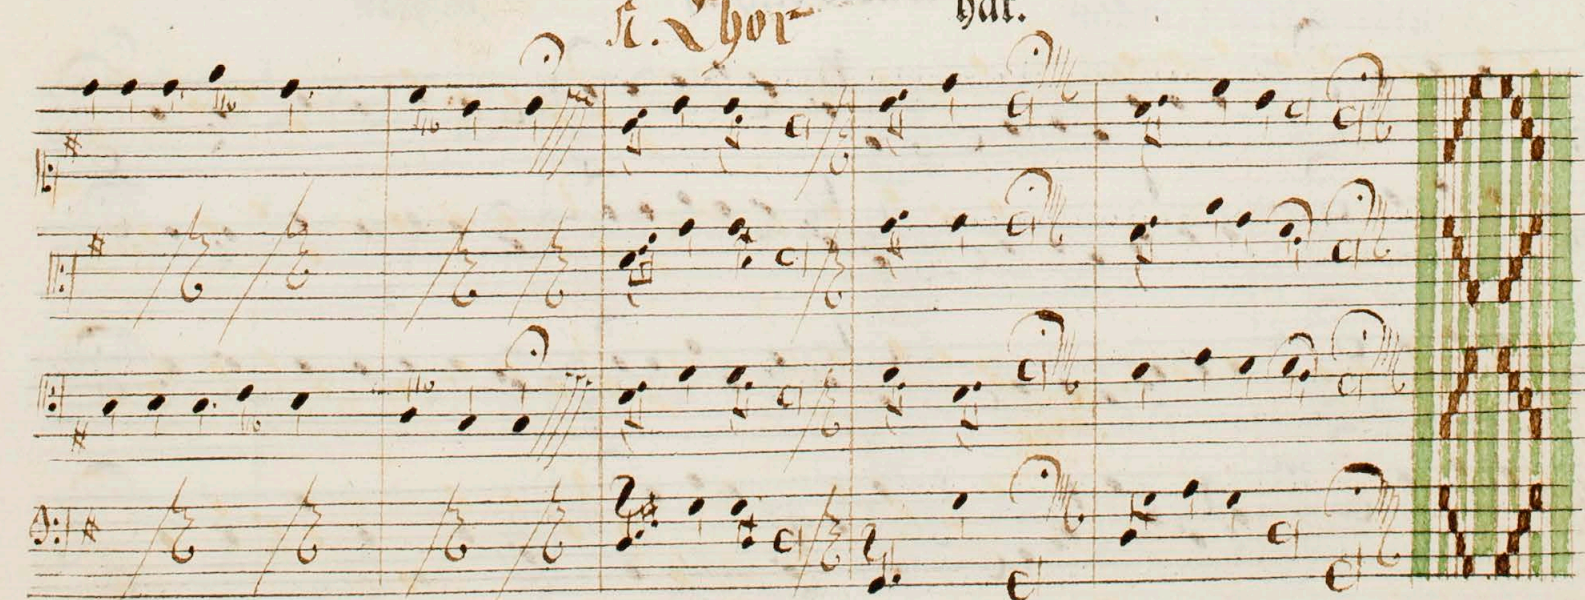 Chor
hat.